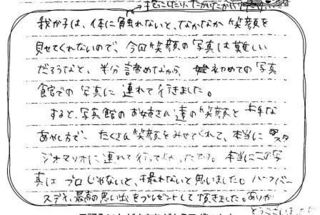 我が子は、体に触れないと、なかなか笑顔を
見せてくれないので、今回笑顔の写真は難しい
だろうなと、半分諦めながら、初めての写真
館での写真に連れて行きました。
すると、写真館のお姉さん達の笑顔と上手な
あやし方で、たくさん笑顔をみせてくれて、本当に スタ
ジオマリオに連れて行って 本当にこの写
真は プロじゃないと、撮れないと思いました。ハーフバー
スデイ、最高の思い出をプレゼントして頂きました。ありが
とうございました